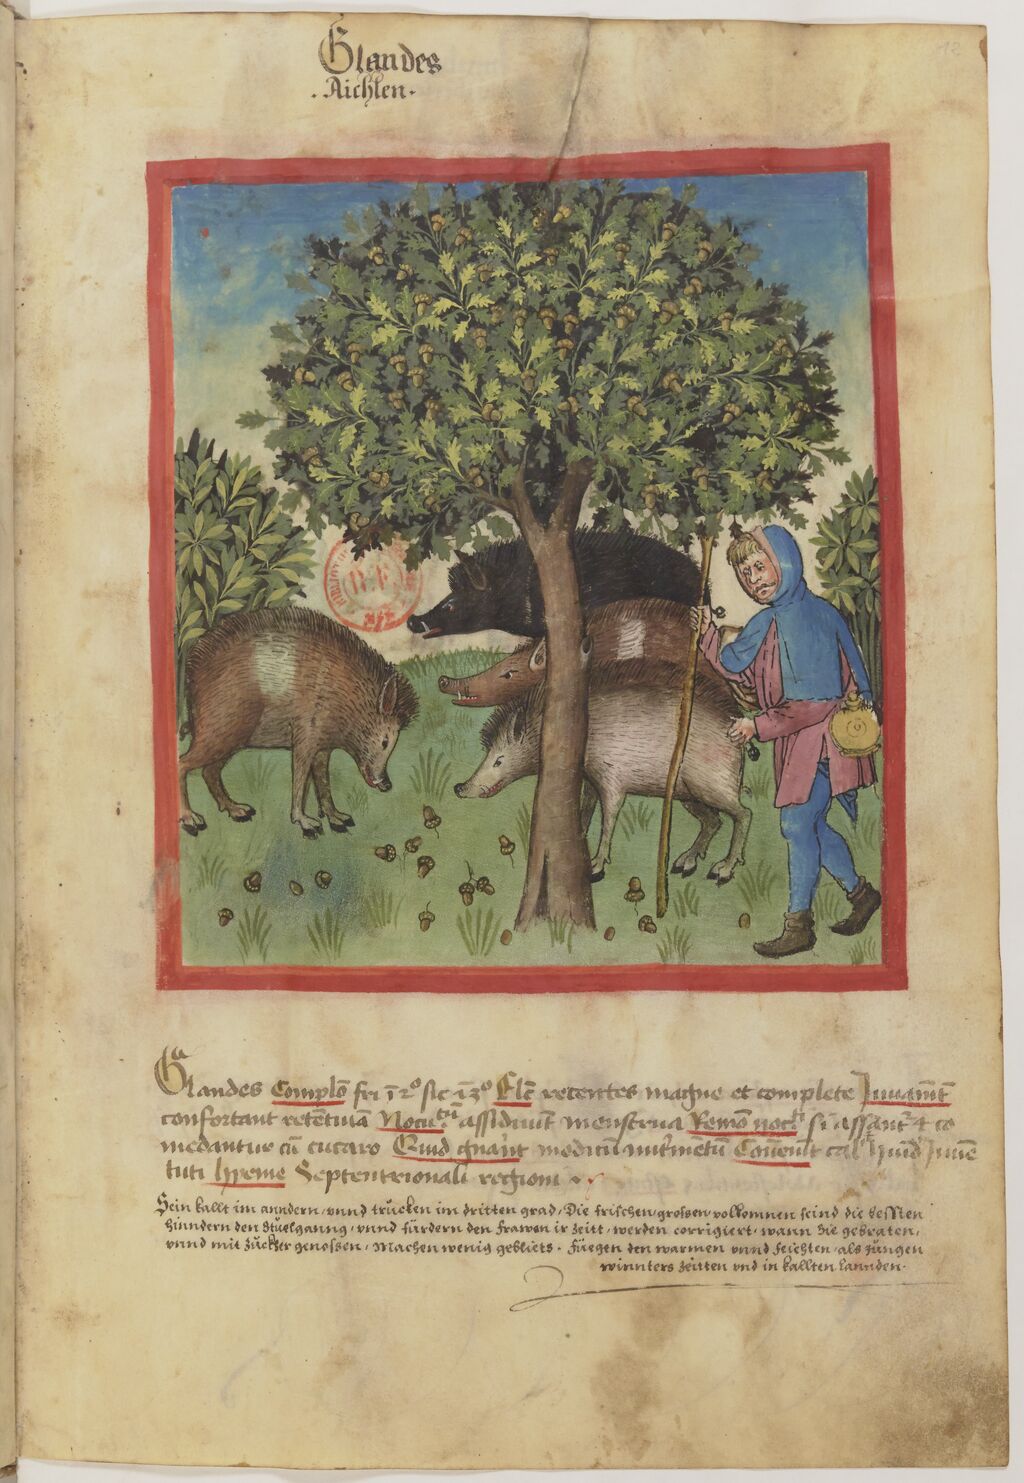 Glandes
. Aichlen .
12
Glandes Complo͞ fri i͞ 2º sic i͞ 3º Elc͞ recentes magne et complete Iuuam͞t
confortant retentiuā Nocu.tū assiduūt menstrua Remo͞ noch si assant᷑ ⁊ co
medantur cū cucaro Quid gnān͞t modicū nutrimētū Cōueīt cal͞ hūid͞ Iuuē
tuti hyeme Septentrionali regioni
Sein kallt im anndern / vnnd trucken im dritten grad / Die frischen / grossen / volkomnen seind die bessten
hinndern den Stuelganng / vnnd fürdern den frawen ir zeitt / werden corrigiert / wann Sie gebraten /
vnnd mit Zuckher genossen / Machen wenig gebliets . Füegen den warmen vnnd feichten / als Jungen
winnters zeitten vnd in kallten lannden .